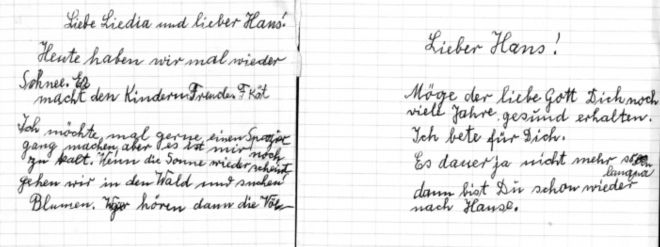 Liebe Liedia und lieber Hans!
Heute haben wir mal wieder
Schnee. Er
macht den Kindern Freude.
Ich möchte mal gerne einen Spazier
gang machen, aber es ist mir noch
zu kalt. Wenn die Sonne wieder scheint
gehen wir in den Wald und suchen
Blumen. hören dann die
Lieber Hans!
Möge der liebe Gott Dich noch
viele Jahre gesund erhalten.
Ich bete für Dich.
Es dauer ja nicht mehr
dann bist Du schon wieder
nach Hause.